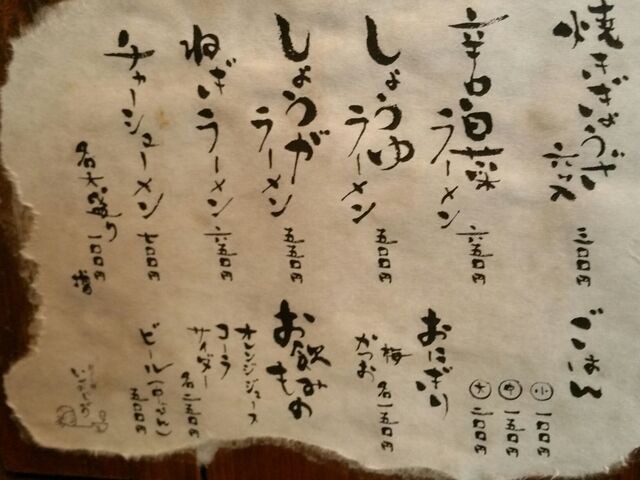 焼きぎょうざ
六ヶ 三〇〇円
辛口白菜
ラーメン 六五〇円
しょうゆ
ラーメン 五〇〇円
しょうが
ラーメン 五五〇円
ねぎラーメン 六五〇円
チャーシューメン 七〇〇円
各大盛り
一〇〇円
ごはん
小 一〇〇円
中 一五〇円
大 二〇〇円
おにぎり
梅
かつお 各一五〇円
お飲みもの
オレンジジュース
コーラ
サイダー 各一五〇円
ビール(中びん)
五〇〇円